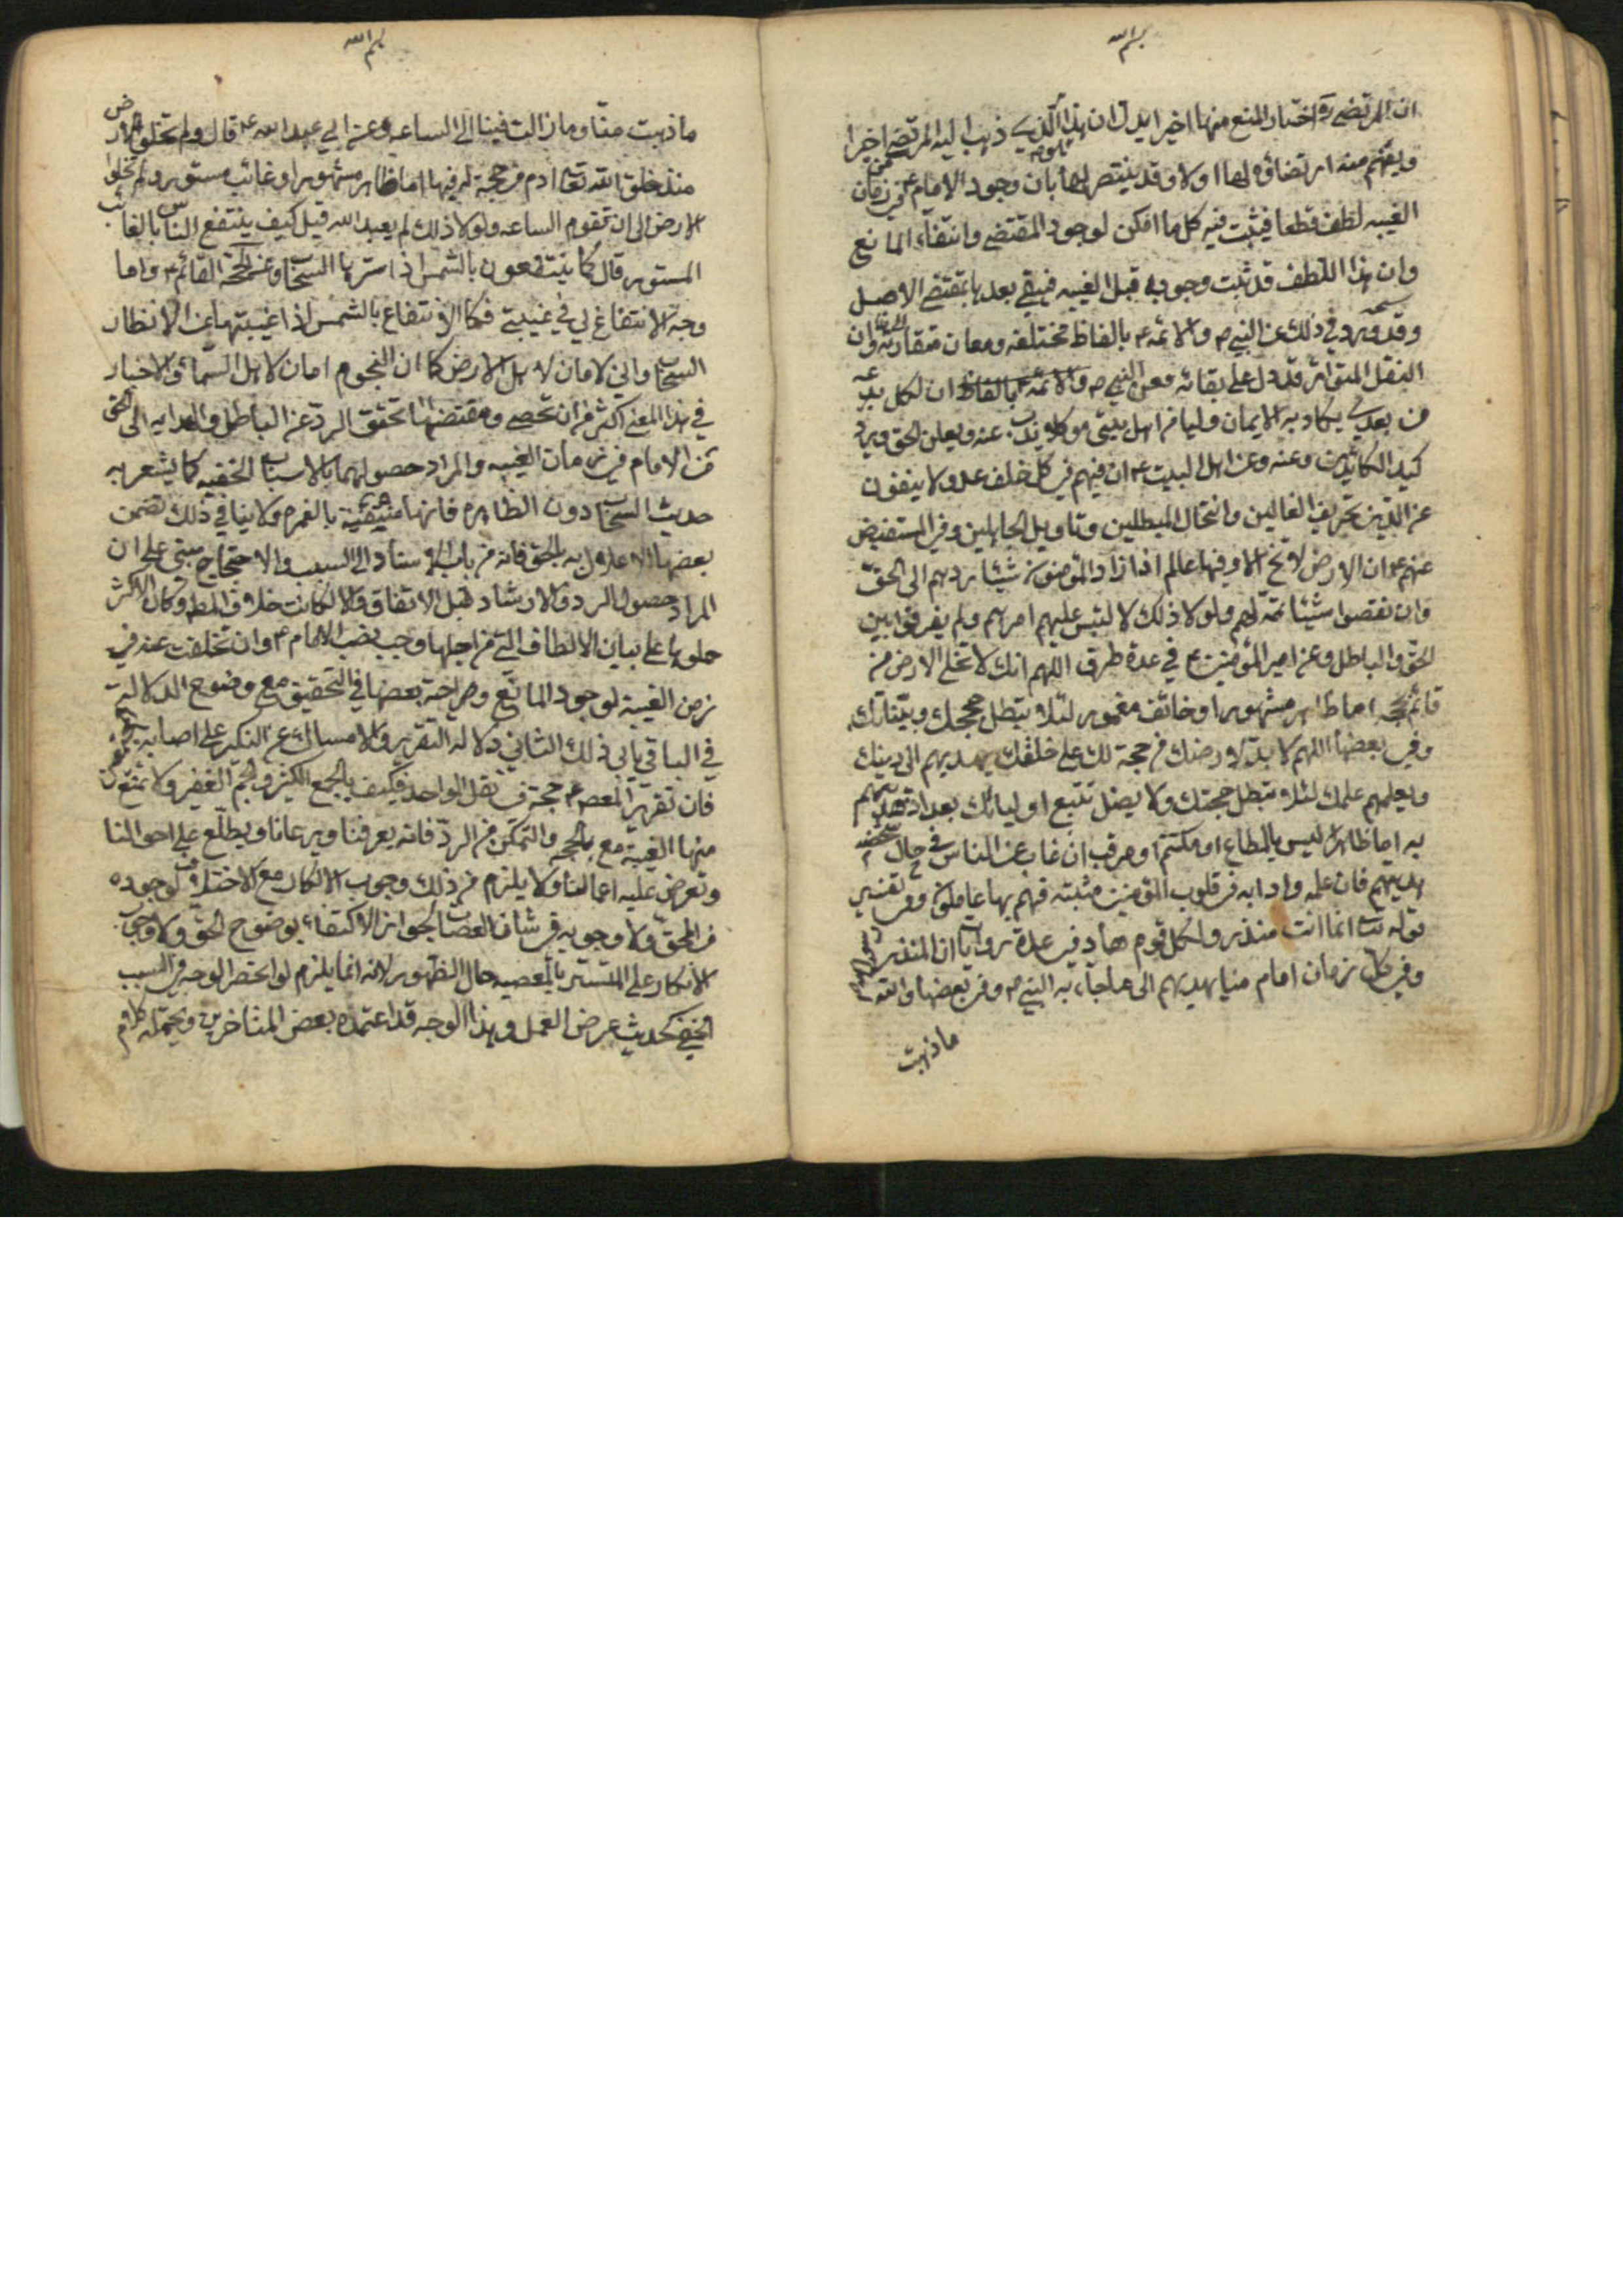 بسم الله
ان المرتضى ره اختار المنع منها اخيرا يدل ان هذا الذي ذهب اليه المرتضى اخيرا
ويفهم منه ارتضاؤه لها اولا وقد ينتصر لها بان وجود الامام ع في زمان
الغيبه لطف قطعا فيثبت فيه كل ما امكن لوجود المقتضى وانتفاء المانع
وان هذا اللطف قد ثبت وجوده قبل الغيبه فيبقى بعدها بمقتضى الاصل
وقد ورد في ذلك عن النبي ص والائمه ع بالفاظ مختلفه ومعان متقاربه وان
النقل المتواتر قد دل على بقائه فعن النبي ص والائمه ع بالفاظ ان لكل بدعه
من بعدي يكاد به الايمان وليا من اهل بيتي موكلا يذب عنه ويعلن الحق ويرد
كيد الكائدين وعنه وعن اهل البيت ع ان فيهم في كل خلف عدولا ينفون
عن الدين تحريف الغالين وانتحال المبطلين وتاويل الجاهلين وفي المستفيض
عنهم ع ان الارض لا تخ الا وفيها عالم اذا زاد المؤمنون شيئا ردهم الى الحق
وان نقصوا شيئا تممه لهم ولولا ذلك لالتبس عليهم امرهم ولم يفرقوا بين
الحق والباطل وعن امير المؤمنين ع في عدة طرق اللهم انك لا تخلي الارض من
قائم بحجه اما ظاهر مشهور او خائف مغمور لئلا يبطل حججك وبيناتك
وفي بعضها اللهم لا بد لارضك من حجة لك على خلقك يهديهم الى دينك
ويعلمهم علمك لئلا تبطل حجتك ولا يضل تتبع اوليائك بعد اذ هديتهم
به اما ظاهر ليس بالمطاع او مكتتم او مترقب ان غاب عن الناس شخصه في حال
هدنتهم فان علمه وادابه في قلوب المؤمنين مثبته فهم بها عاملون وفي تفسير
قوله تعالى انما انت منذر ولكل قوم هاد في عدة روايات ان المنذر رسول الله
وفي كل زمان امام منا يهديهم الى ما جاء به النبي ص وفي بعضها والله
ما ذهبت
بسم الله
ما ذهبت منا وما زالت فينا الى الساعه وعن ابي عبد الله ع قال ولم تخلو الارض
منذ خلق الله تعالى ادم من حجة له فيها اما ظاهر مشهور او غائب مستور ولم تخلوا
الارض الى ان تقوم الساعه ولولا ذلك لم يعبد الله قيل كيف ينتفع الناس بالغائب
المستور قال كما ينتفعون بالشمس اذا سترها السحاب وعن الحجة القائم ع واما
وجه الانتفاع لي في غيبتي فكالانتفاع بالشمس اذا غيبتها عن الانظار
السحاب واني لامان لاهل الارض كما ان النجوم امان لاهل السماء والاخبار
في هذا المعنى اكثر من ان تحصى ومقتضاها تحقق الرد عن الباطل والهدايه الى الحق
من الامام في زمان الغيبه والمراد حصولهما بالاسباب الخفيه كما يشعر به
حديث السحاب دون الظاهره فانها منتفية بالضروره ولا ينافي ذلك تضمن
بعضها الاعلان به بالحق فانه من باب الاسناد الى السبب والاحتجاج مبتى على ان
المراد حصول الرد والارشاد قبل الاتفاق والا لكانت خلاف المط وكان الاكثر
حملوها على بيان الالطاف التي من اجلها وجب نصب الامام ع وان تخلفت عنه في
زمن الغيبة لوجود المانع وصراحة بعضها في التحقيق مع وضوح الدلالة
في الباقي يابى ذلك الثاني دلالة التقرير والامساك عن النكير على اصابه
فان تقرير المعصوم ع حجة في نقل الواحد فكيف بالجمع الكثير والجم الغفير ولا تمنع
منها الغيبة مع الحجه والتمكن من الرد فانه يعرفنا ويرعانا ويطلع على احوالنا
وتعرض عليه اعمالنا ولا يلزم من ذلك وجوب الانكار مع الاختلاف لوجوده
من المحق ولا وجوبه في شان العصاة لجواز الاكتفاء بوضوح الحق ولا وجوب
الانكار على المتستر بالمعصيه حال الظهور لانه انما يلزم لو انحصر الوجه في السبب
الخفي كحديث عرض العمل وهذا الوجه قد اعتمده بعض المتاخرين ويحتمله كلام